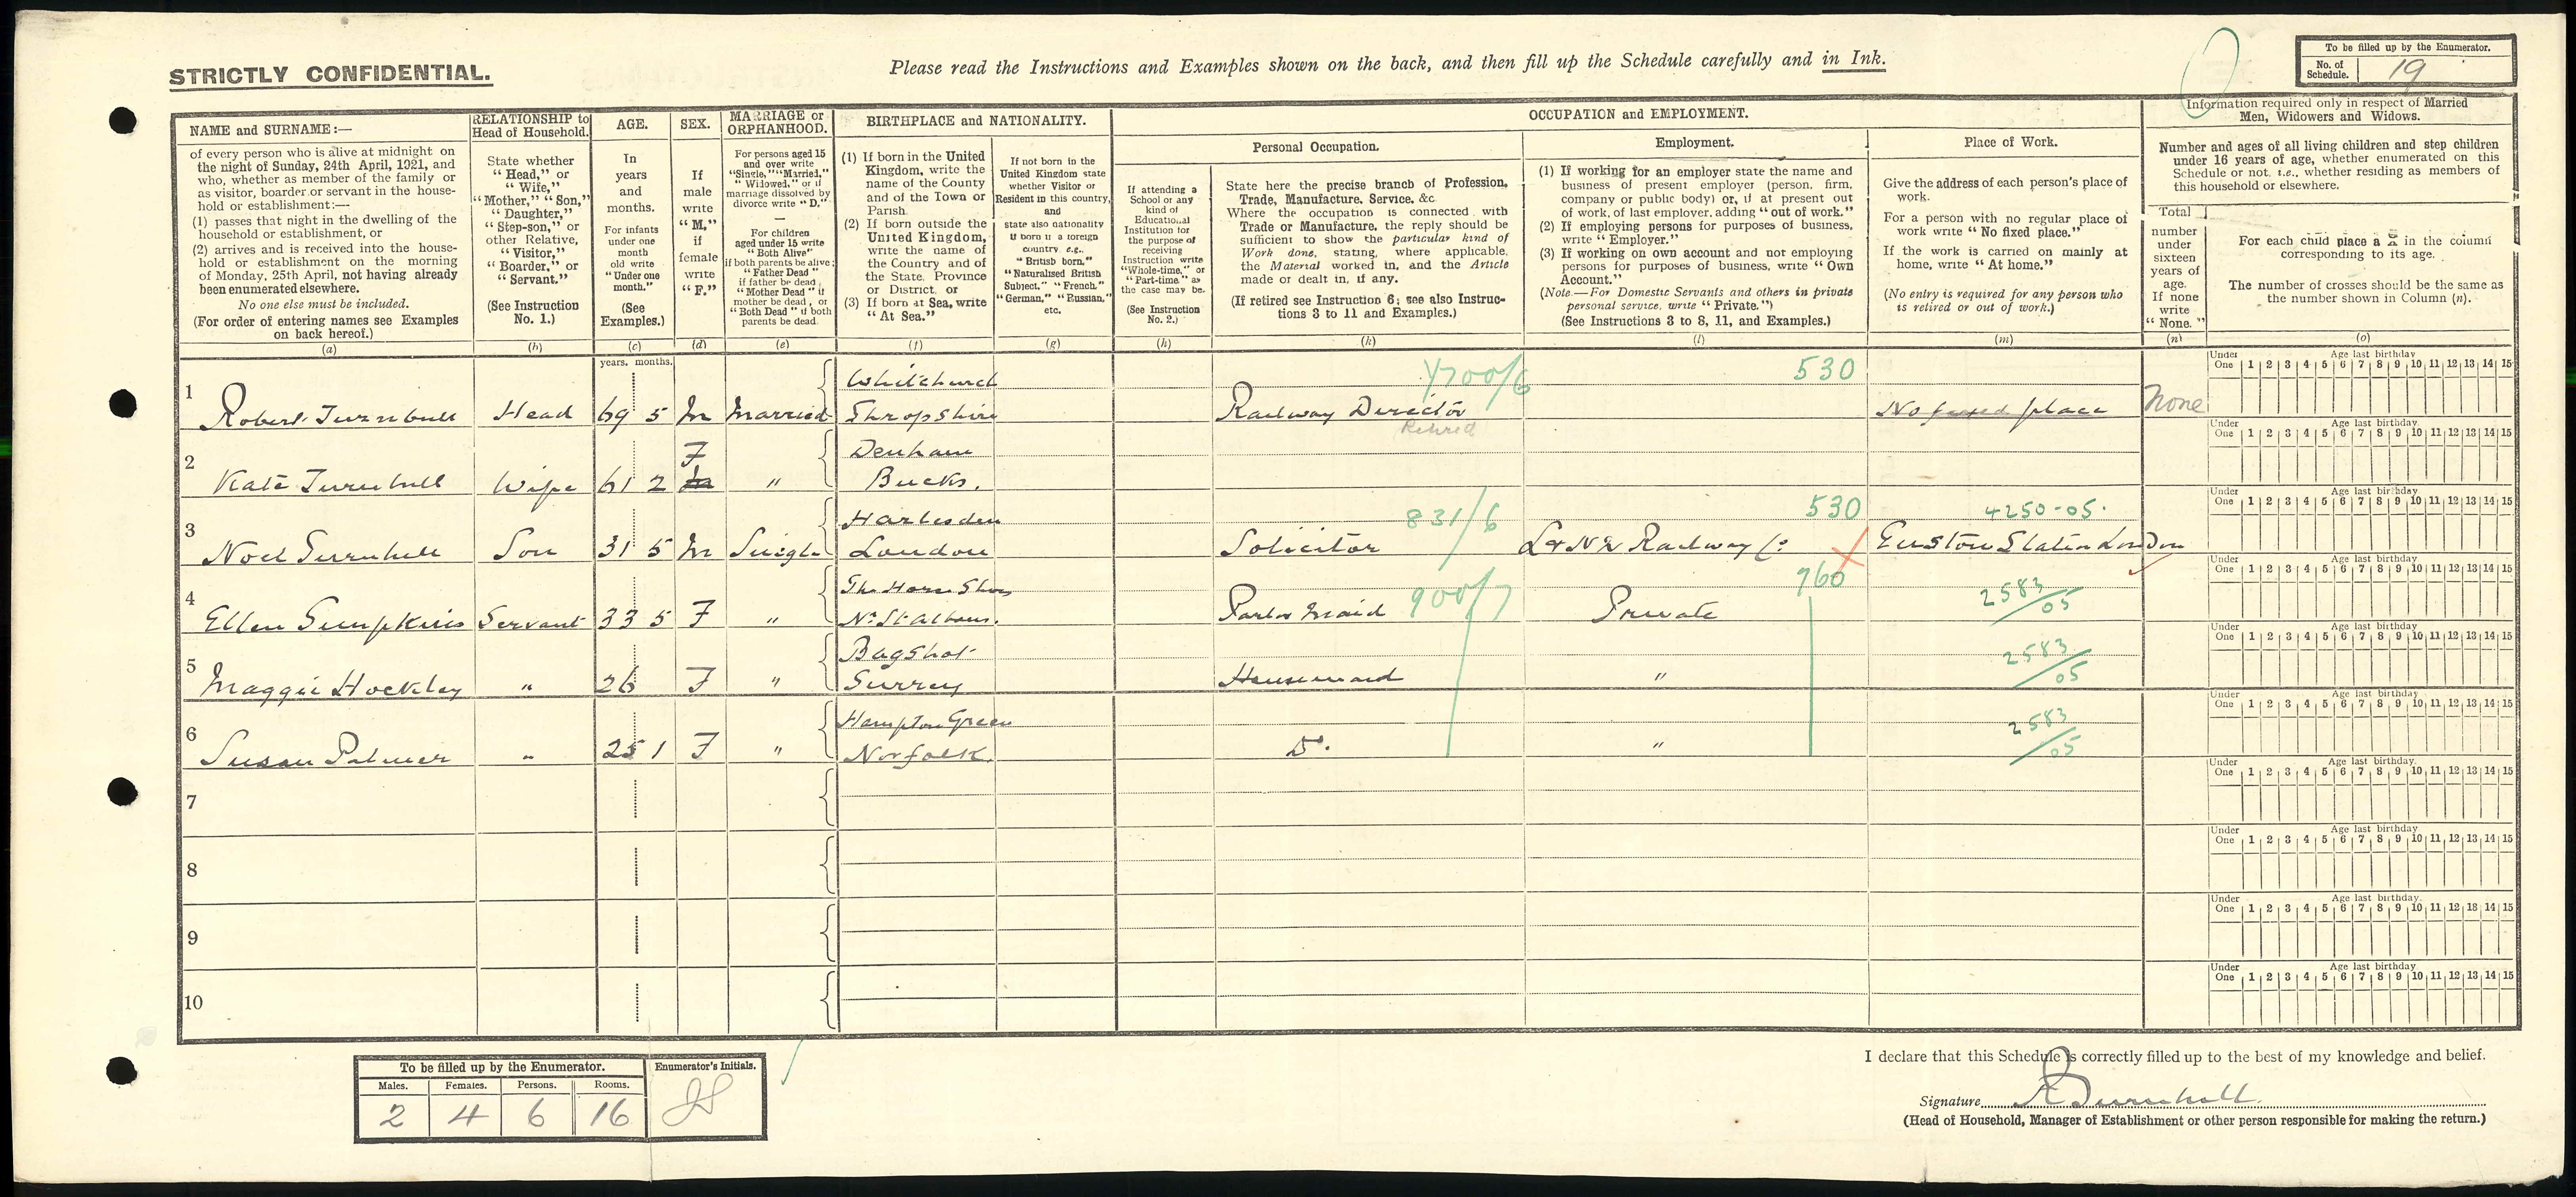 STRICTLY CONFIDENTIAL.
Please read the Instructions and Examples shown on the back, and then fill up the Schedule carefully and in Ink.
To be filled up by the Enumerator.
No. of Schedule. 19
NAME and SURNAME:—
of every person who is alive at midnight on
the night of Sunday, 24th April, 1921, and
who, whether as member of the family or
as visitor, boarder or servant in the house-
hold or establishment:—
(1) passes that night in the dwelling of the
household or establishment, or
(2) arrives and is received into the house-
hold or establishment on the morning
of Monday, 25th April, not having already
been enumerated elsewhere.
No one else must be included.
(For order of entering names see Examples
on back hereof.)
(a)
RELATIONSHIP to
Head of Household.
State whether
"Head," or
"Wife,"
"Mother," "Son,"
"Daughter,"
"Step-son," or
other Relative,
"Visitor,"
"Boarder," or
"Servant."
(See Instruction
No. 1.)
(b)
AGE.
In
years
and
months.
For infants
under one
month
old write
"Under one
month."
(See
Examples.)
(c)
SEX.
If
male
write
"M,"
if
female
write
"F."
(d)
MARRIAGE or
ORPHANHOOD.
For persons aged 15
and over write
"Single," "Married,"
"Widowed," or if
marriage dissolved by
divorce write "D."
For children
aged under 15 write
"Both Alive"
if both parents be alive;
"Father Dead"
if father be dead,
"Mother Dead" if
mother be dead, or
"Both Dead" if both
parents be dead.
(e)
BIRTHPLACE and NATIONALITY.
(1) If born in the United
Kingdom, write the
name of the County
and of the Town or
Parish.
(2) If born outside the
United Kingdom,
write the name of
the Country and of
the State, Province
or District, or
(3) If born at Sea, write
"At Sea."
(f)
If not born in the
United Kingdom state
whether Visitor or
Resident in this country,
and
state also nationality
if born in a foreign
country e.g.,
"British born,"
"Naturalised British
Subject," "French,"
"German," "Russian,"
etc.
(g)
OCCUPATION and EMPLOYMENT.
If attending a
School or any
kind of
Educational
Institution for
the purpose of
receiving
Instruction write
"Whole-time," or
"Part-time" as
the case may be.
(See Instruction
No. 2.)
(h)
Personal Occupation.
State here the precise branch of Profession,
Trade, Manufacture, Service, &c.
Where the occupation is connected with
Trade or Manufacture, the reply should be
sufficient to show the particular kind of
Work done, stating, where applicable,
the Material worked in, and the Article
made or dealt in, if any.
(If retired see Instruction 6; see also Instruc-
tions 3 to 11 and Examples.)
(k)
Employment.
(1) If working for an employer state the name and
business of present employer (person, firm,
company or public body) or, if at present out
of work, of last employer, adding "out of work."
(2) If employing persons for purposes of business,
write "Employer."
(3) If working on own account and not employing
persons for purposes of business, write "Own
Account."
(Note.—For Domestic Servants and others in private
personal service, write "Private.")
(See Instructions 3 to 8, 11, and Examples.)
(l)
Place of Work.
Give the address of each person's place of
work.
For a person with no regular place of
work write "No fixed place."
If the work is carried on mainly at
home, write "At home."
(No entry is required for any person who
is retired or out of work.)
(m)
Information required only in respect of Married
Men, Widowers and Widows.
Number and ages of all living children and step children
under 16 years of age, whether enumerated on this
Schedule or not, i.e., whether residing as members of
this household or elsewhere.
Total
number
under
sixteen
years of
age.
If none
write
"None."
(n)
For each child place a X in the column
corresponding to its age.
The number of crosses should be the same as
the number shown in Column (n).
(o)
years. months.
Under One 1 2 3 4 5 6 7 8 9 10 11 12 13 14 15
Age last birthday
1 Robert Turnbull Head 69 5 M Married Whitchurch Shropshire Railway Director Retired 530 No fixed place None
2 Kate Turnbull Wife 61 2 F " Denham Bucks.
3 Noel Turnbull Son 31 5 M Single Harlesden London Solicitor 831/6 L & N W Railway Co 530 Euston Station London 4250-05.
4 Ellen Simpkins Servant 33 5 F " The Horse Shoes Nr St Albans. Parlor Maid 900/7 Private 760 2583/05
5 Maggie Hockley " 26 F " Bagshot Surrey Housemaid " 2583/05
6 Susan Palmer " 25 1 F " Hampton Green Norfolk. Do. " 2583/05
7
8
9
10
To be filled up by the Enumerator.
Males. Females. Persons. Rooms.
2 4 6 16
Enumerator's Initials.
I declare that this Schedule is correctly filled up to the best of my knowledge and belief.
Signature R Turnbull
(Head of Household, Manager of Establishment or other person responsible for making the return.)